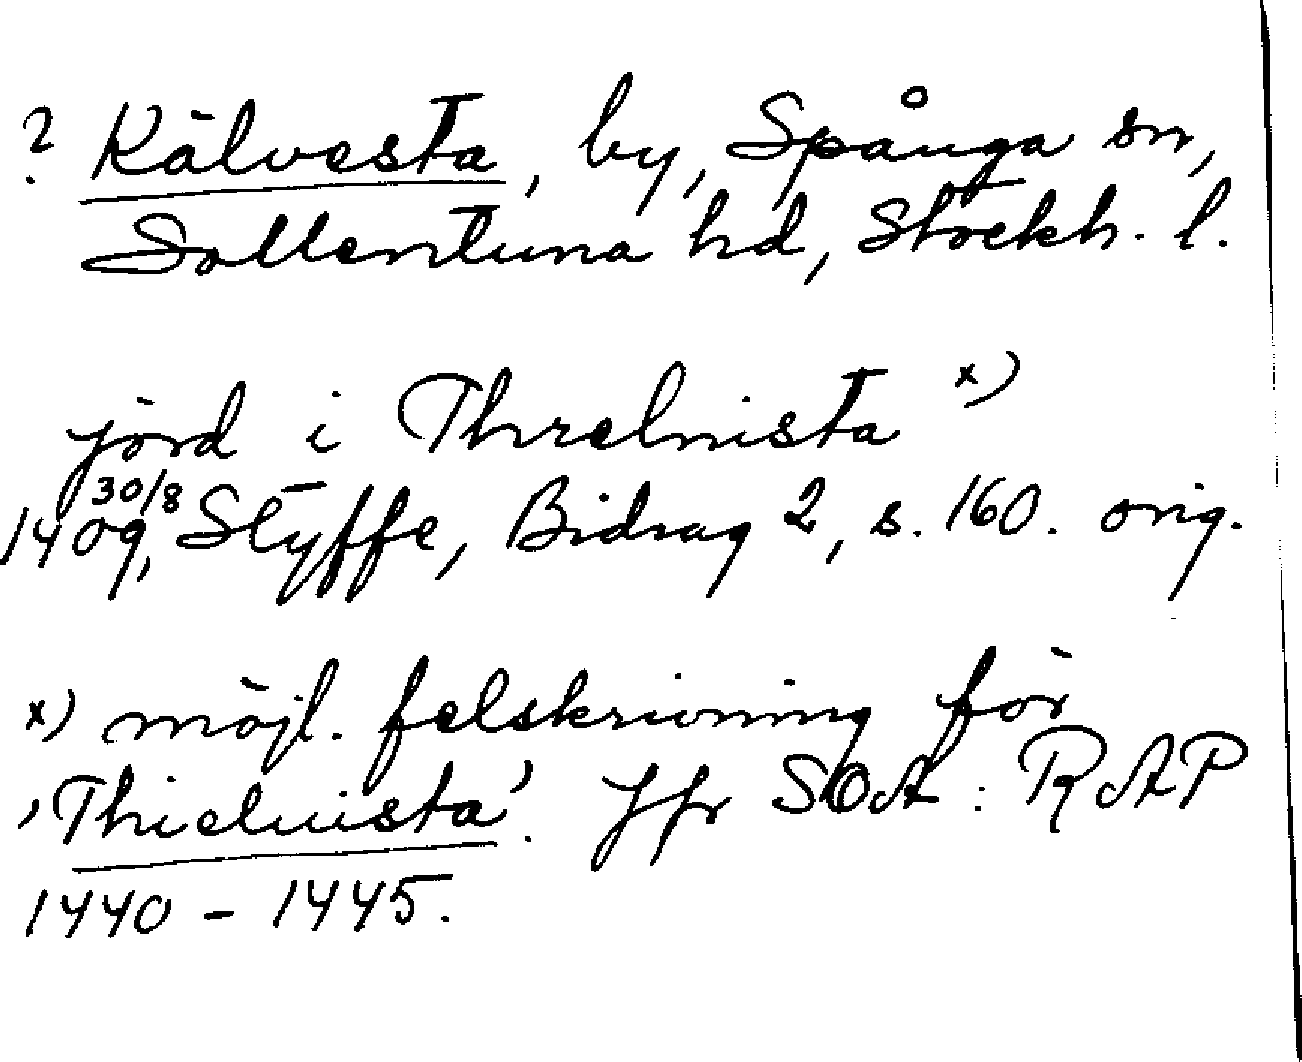 ? Kälvesta, by, Spånga sn,
Sollentuna hd, Stockh. l.
jord i Threlnista x)
1409 30/8, Styffe, Bidrag 2, s. 160. orig.
x) möjl. felskrivning för
'Thieluista'. Jfr SOA: RAP
1440 - 1445.